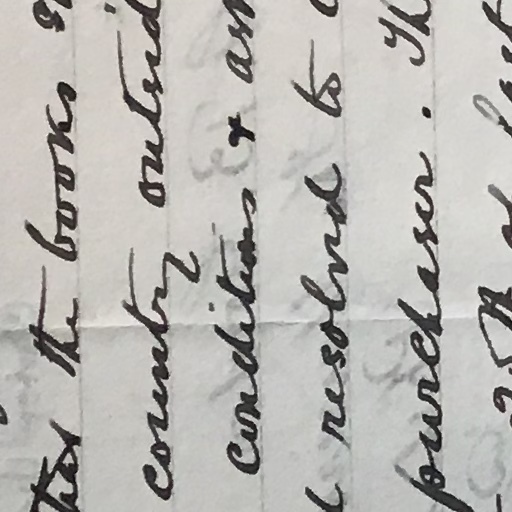 that the books s
country outsid
conditions & ass
d resolved to c
purchaser. Th
25th of last